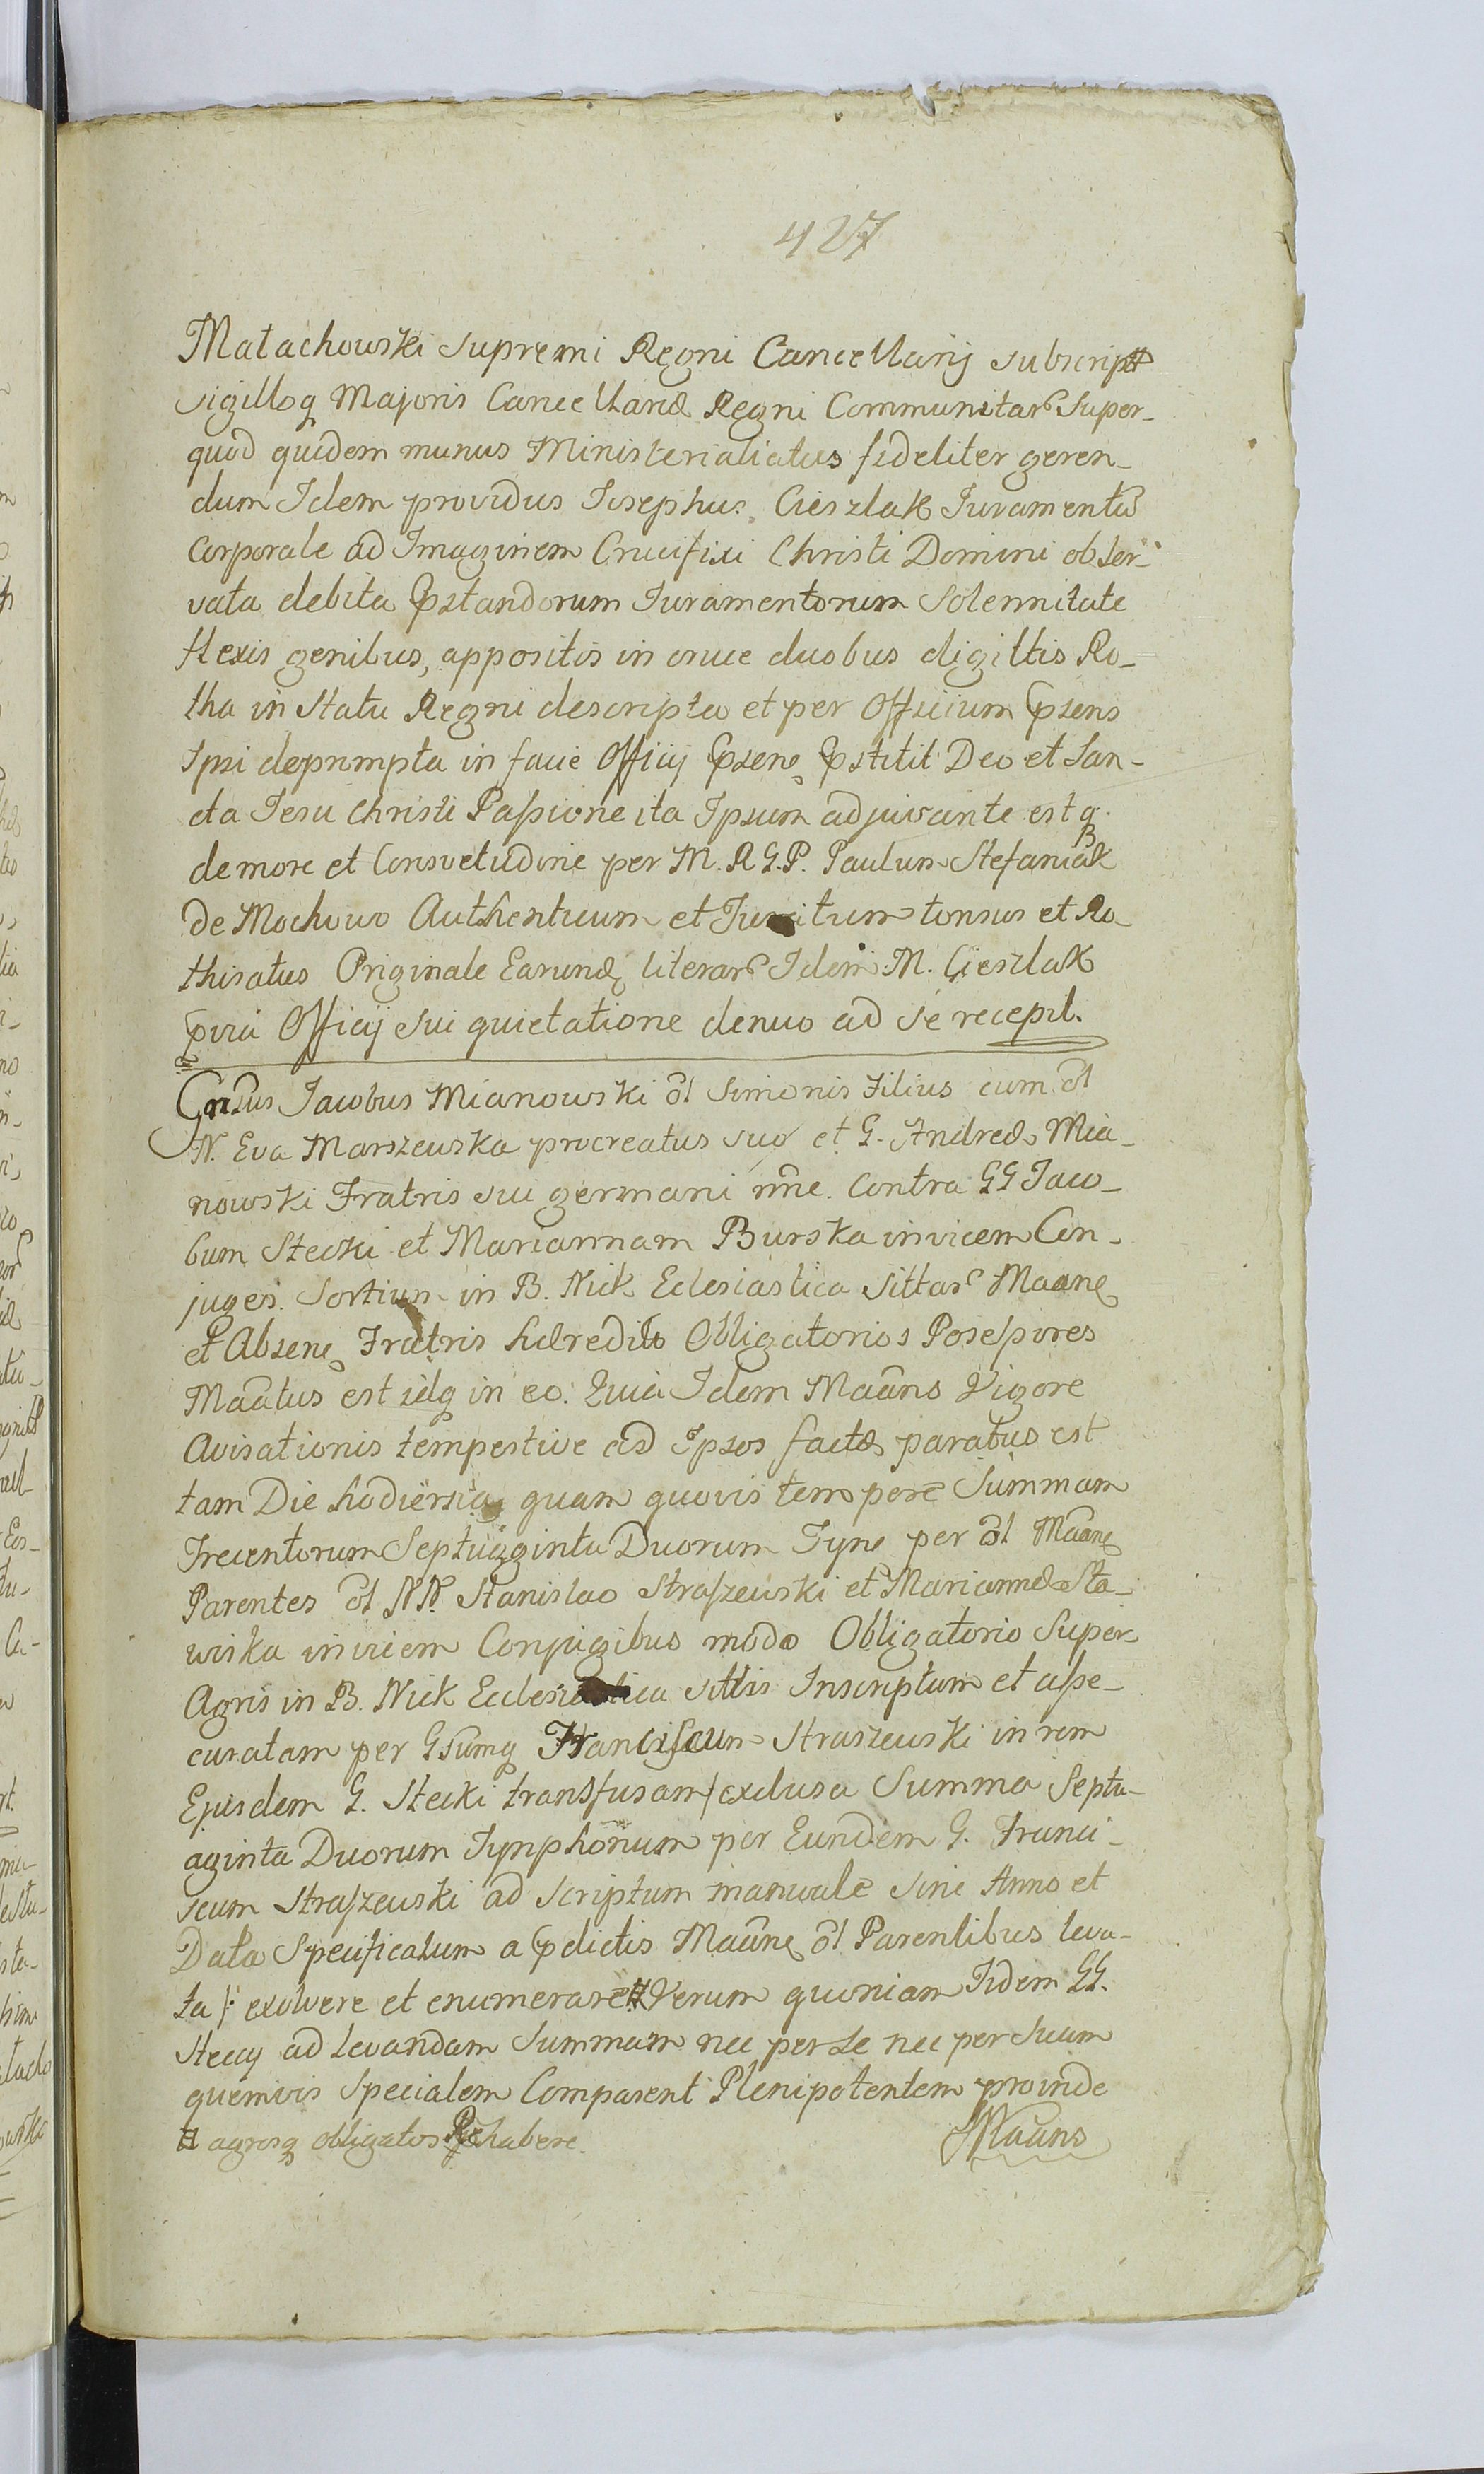 427
Małachowski Supremi Regni Cancellarij subscript
sigilloq Majoris Cancellariæ Regni Communitar Super
quod quidem munus Ministerialiatus fideliter geren-
dum Idem providus Josephus Cieszlak Juramentū
Corporale ad Imaginem Crucifixi Christi Domini obser-
vata debita pstandorum Juramentorum Solennitate
flexis genibus, appositis in cruce duobus digittis Ro-
tha in Statu Regni descripta et per Officium psens
Ipsi deprompta in facie Officij psene pstitit Deo et San-
cta Jesu Christi Passione ita Ipsum adjuvante estq
de more et Consvetudine per M. R G.P. Paulum Stefaniak
de Mochowo Authenticum et Juratum tonsus et Ro-
thisatus Originale Earund literar Idem M. Cieszlak
pvia Officij sui quietatione denuo ad se recepit.
Gnsus Jacobus Mianowski ōl Simonis Filius cum ōl
N. Eva Marszewska procreatus suo et G. Andreæ Mia-
nowski Fratris sui germani nñe. Contra GG Jaco-
bum Stecki et Mariannam Burska invicem Con-
juges. Sortium in B. Nick Eclesiastica Sittar Maane
et Absene Fratris hæredit Obligatorios Posessores
Maatus est idq in eo. Quia Idem Maans Vigore
Avisationis tempestive ad Ipsos factæ paratus est
tam Die hodierna quam quovis tempore Summam
Trecentorum Septuagginta Duorum Tyne per ōl Maane
Parentes ōl NN. Stanislao Straszewski et Mariannæ Sta-
wiska invicem Conjugibus modo Obligatorio Super
Agris in B. Nick Eclesiastica sittis Inscriptam et asse-
curatam per Gsumq Franciscum Straszewski in rem
Ejusdem G. Stecki transfusam /exclusa Summa Septu-
aginta Duorum Tynphonum per Eundem G. Franci-
scum Straszewski ad Scriptum manuale Sine Anno et
Data Specificatum a pdictis Maane ōl Parentibus leva-
ta/: exolvere et enumerare # Verum quoniam Iidem GG.
Steccy ad levandam Summam nec per se nec per Suum
quemvis Specialem Comparent Plenipotentem proinde
# agrosq obligatos Rehabere.
Maans